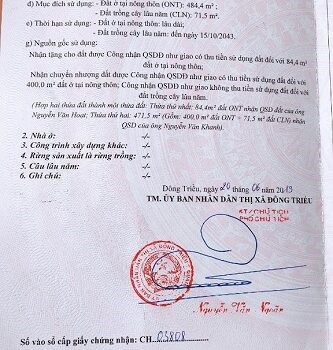 d) Mục đích sử dụng: - Đất ở tại nông thôn (ONT): 484,4 m²;
- Đất trồng cây lâu năm (CLN): 71,5 m².
e) Thời hạn sử dụng: - Đất ở tại nông thôn: lâu dài;
- Đất trồng cây lâu năm: đến ngày 15/10/2043.
g) Nguồn gốc sử dụng:
Nhận tặng cho đất được Công nhận QSDĐ như giao có thu tiền sử dụng đất đối với 84,4 m²
đất ở tại nông thôn;
Nhận chuyển nhượng đất được Công nhận QSDĐ như giao có thu tiền sử dụng đất đối với
400,0 m² đất ở tại nông thôn; Công nhận QSDĐ như giao không thu tiền sử dụng đất đối với
đất trồng cây lâu năm.
(Hợp hai thửa đất thành một thửa đất: Thửa thứ nhất: 84,4m² đất ONT nhận QSD đất của ông
Nguyễn Văn Hoat; Thửa thứ hai: 471,5 m² (Gồm: 400,0 m² đất ONT + 71,5 m² đất CLN) nhận
QSD của ông Nguyễn Văn Khanh).
2. Nhà ở: -/-
3. Công trình xây dựng khác: -/-
4. Rừng sản xuất là rừng trồng: -/-
5. Cây lâu năm: -/-
6. Ghi chú: -/-
Đông Triều, ngày 20 tháng 06 năm 2013
TM. ỦY BAN NHÂN DÂN THỊ XÃ ĐÔNG TRIỀU
KT/CHỦ TỊCH
PHÓ CHỦ TỊCH
Nguyễn Văn
Số vào sổ cấp giấy chứng nhận: CH 05808